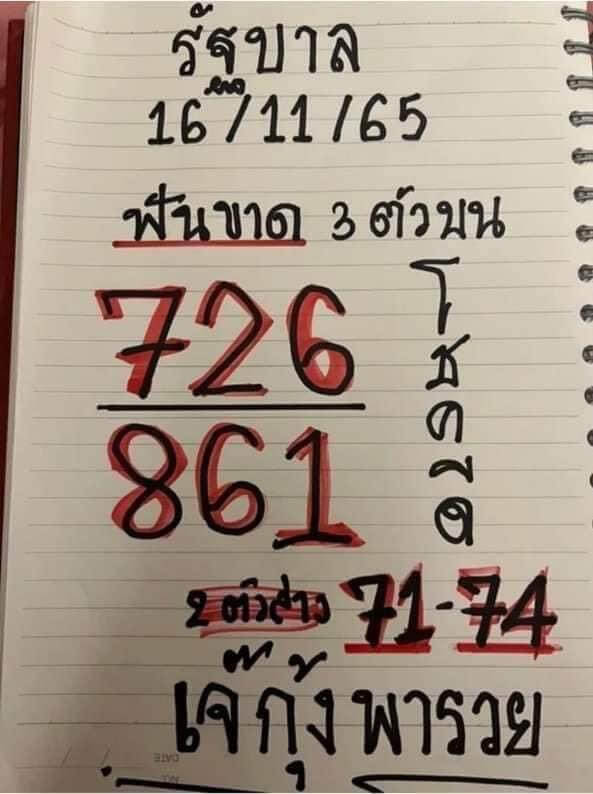 รัฐบาล
16/11/65
ฟันขาด 3 ตัวบน
726
861
โชคดี
2 ตัวล่าง 71-74
เจ๊กุ้งพารวย
DATE
NO.